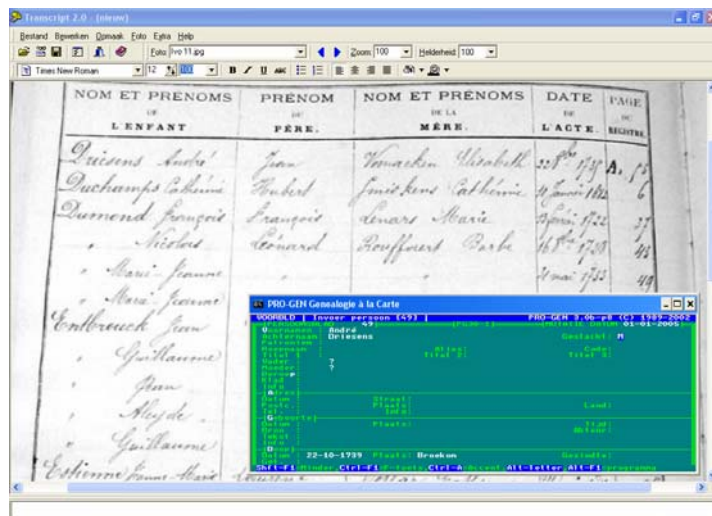 Transcript 2.0 - (nieuw)
Bestand Bewerken Opmaak Foto Extra Help
Foto: Ivo 11.jpg Zoom: 100 Helderheid: 100
Times New Roman 12 100 B I U ABC
NOM ET PRÉNOMS PRÉNOM NOM ET PRÉNOMS DATE PAGE
DE DU DE LA DE DU
L'ENFANT PÈRE. MÈRE. L'ACTE. REGISTRE.
Driesens André Jean Elisabeth 1739 A.
Duchamps Cathérine Hubert Cathérine 6
Dumond François François Lenars Marie 1722 37
" Nicolas Léonard Barbe 1730 43
" Marie-Jeanne " " mai 1733 49
" Marie-Jeanne
Entbrouck Jean
" Guillaume
" Jean
" Aleyde
" Guillaume
Estienne Jeanne-Marie
PRO-GEN Genealogie à la Carte
VOORBLD | Invoer persoon [49] PRO-GEN 3.0b-p8 (C) 1989-2002
PERSOONSBLAD 49 MUTATIE DATUM 01-01-2005
Voornamen André
Achternaam Driesens Geslacht: M
Patroniem
Roepnaam Alias: Code:
Titel 1 Titel 2: Titel 3:
Vader ?
Moeder ?
Beroep
Blad
Info
Adres
Datum Straat:
Postc. Plaats: Land:
Tel. Info:
Geboorte
Datum Plaats: Tijd:
Bron Akte nr:
Tekst
Info
Doop
Datum 22-10-1739 Plaats: Broekom Gezindte:
Shft-F1:Minder,Ctrl-F1:F-toets,Ctrl-A:Accent,Alt-letter,Alt-F1:programma